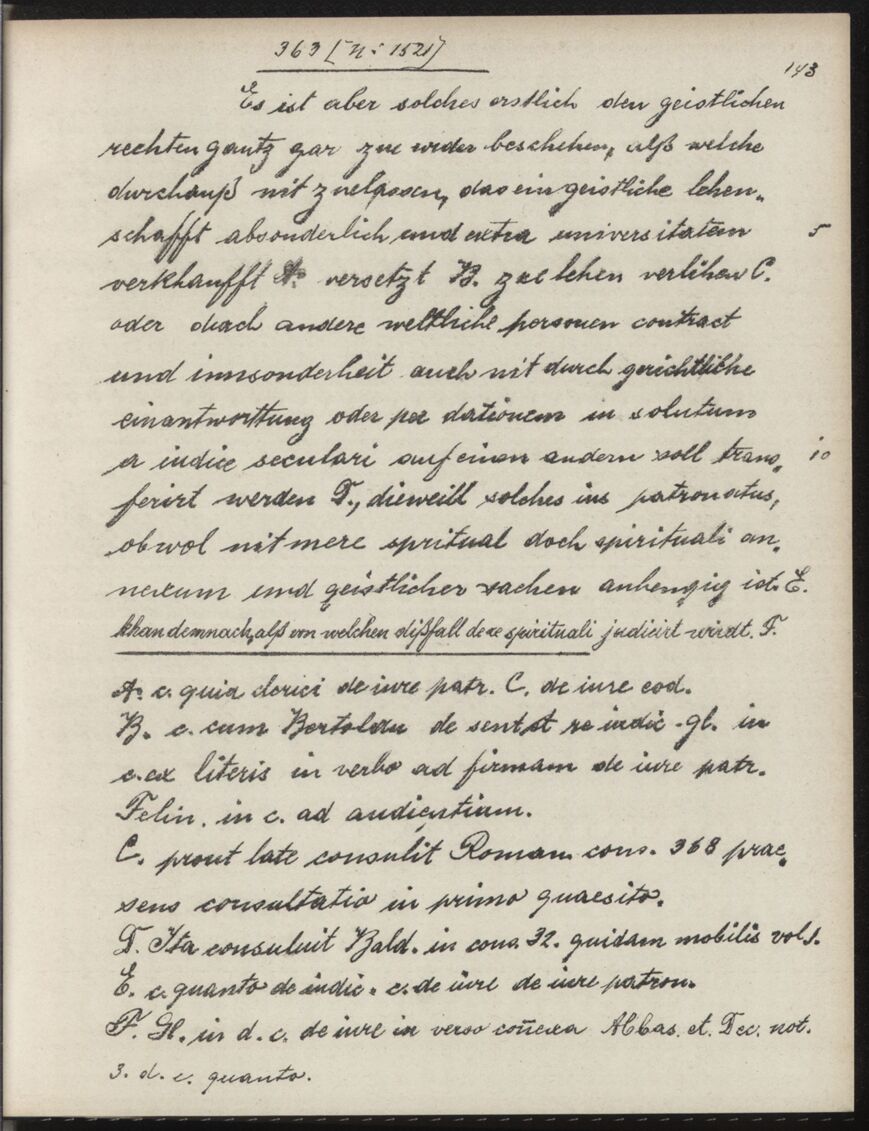 363 [N: 1521]
143
Es ist aber solches erstlich den geistlichen
rechten gantz gar zue wider beschehen, alß welche
durchauß nit zuelassen, das ein geistliche lehen„
schafft absonderlich und extra universitatem 5
verkhaufft A. versetzt B. zue lehen verlihen C.
oder durch andere weltliche personen contract
und innsonderheit auch nit durch gerichtliche
einantworttung oder per dationem in solutum
a iudice seculari auf einen andern soll trans„ 10
ferirt werden D., dieweill solches ius patronatus,
obwol nit mere spritual doch spirituali an„
nexum und geistlicher sachen anhengig ist. E.
khan demnach, alß von welchen dißfall de re spirituali judicirt wirdt. F.
A. c. quia clerici de iure patr. C. de iure eod.
B. c. cum Bertoldu de sent et re iudic. gl. in
c. ex literis in verbo ad firmam de iure patr.
Felin. in c. ad audientiam.
C. prout late consulit Roman. cons. 368 prae„
sens consultatio in primo quaesito.
D. Ita consuluit Bald. in cons. 32. quidam mobilis vol 1.
E. c. quanto de iudic. c. de iure de iure patron.
F. Gl. in d. c. de iure in verso coñexa Abbas. et. Dec. not.
3. d. c. quanto.